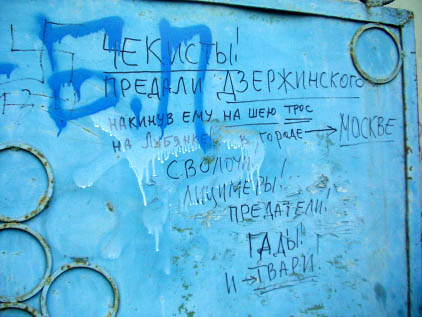 ЧЕКИСТЫ!
ПРЕДАЛИ ДЗЕРЖИНСКОГО
НАКИНУВ ЕМУ НА ШЕЮ ТРОС
НА ЛУБЯНКЕ В ГОРОДЕ → МОСКВЕ
СВОЛОЧИ!
ЛИЦИМЕРЫ!
ПРЕДАТЕЛИ!
ГАДЫ!
И → ТВАРИ!